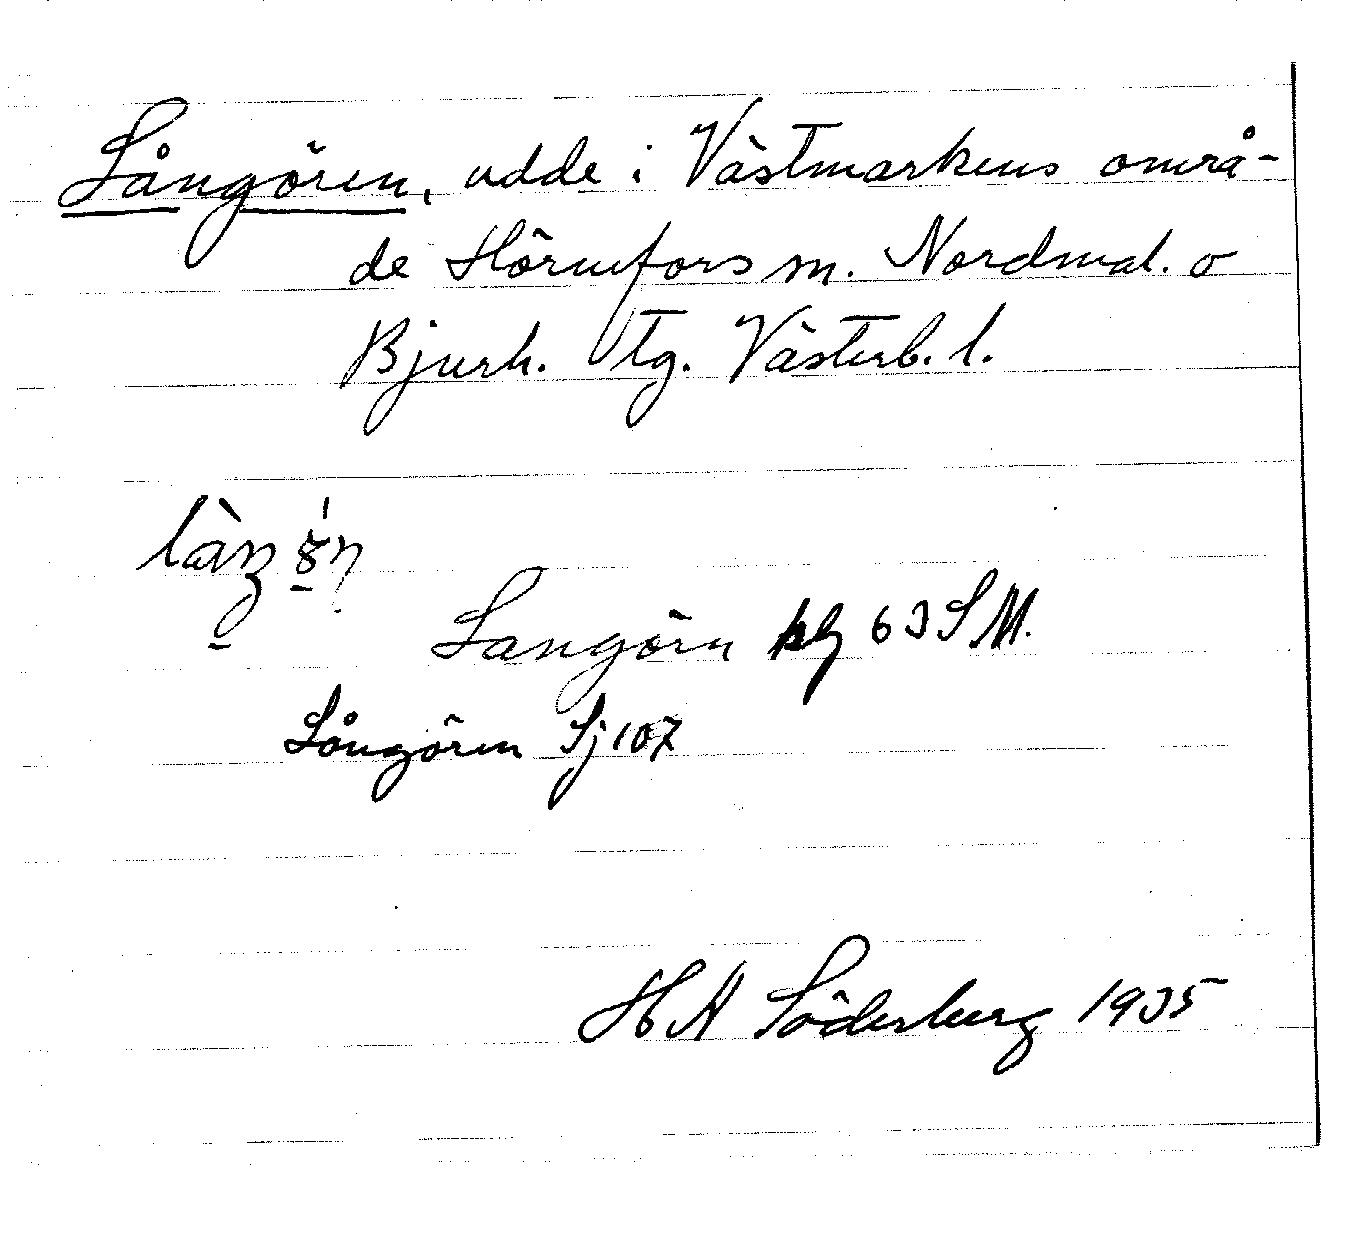 Långören, udde i Västmarkens områ-
de Hörnefors sn. Nordmal. o
Bjurh. tg. Västerb. l.
Langörn 63 SM.
Långören Sj 107
H A Söderberg 1935